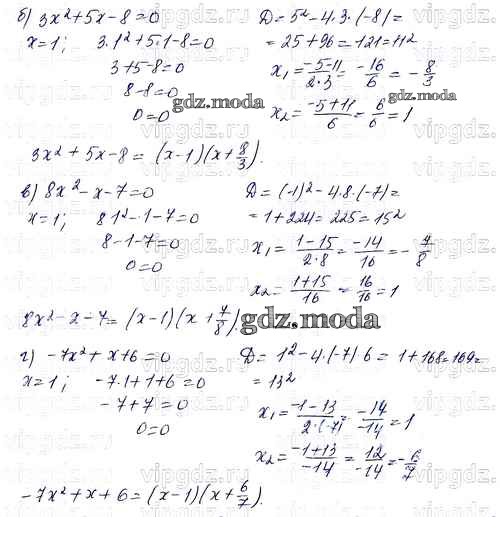 б) 3x²+5x-8=0
x=1; 3·1²+5·1-8=0
3+5-8=0
8-8=0
0=0
D=5²-4·3·(-8)=
=25+96=121=11²
x₁=(-5-11)/(2·3)=-16/6=-8/3
x₂=(-5+11)/6=6/6=1
gdz.moda
3x²+5x-8=(x-1)(x+8/3).
в) 8x²-x-7=0
x=1; 8·1²-1-7=0
8-1-7=0
0=0
D=(-1)²-4·8·(-7)=
=1+224=225=15²
x₁=(1-15)/(2·8)=-14/16=-7/8
x₂=(1+15)/16=16/16=1
8x²-x-7=(x-1)(x+7/8).
gdz.moda
г) -7x²+x+6=0
x=1; -7·1+1+6=0
-7+7=0
0=0
D=1²-4·(-7)·6=1+168=169=
=13²
x₁=(-1-13)/(2·(-7))=-14/-14=1
x₂=(-1+13)/-14=12/-14=-6/7
-7x²+x+6=(x-1)(x+6/7).
vipgdz.ru